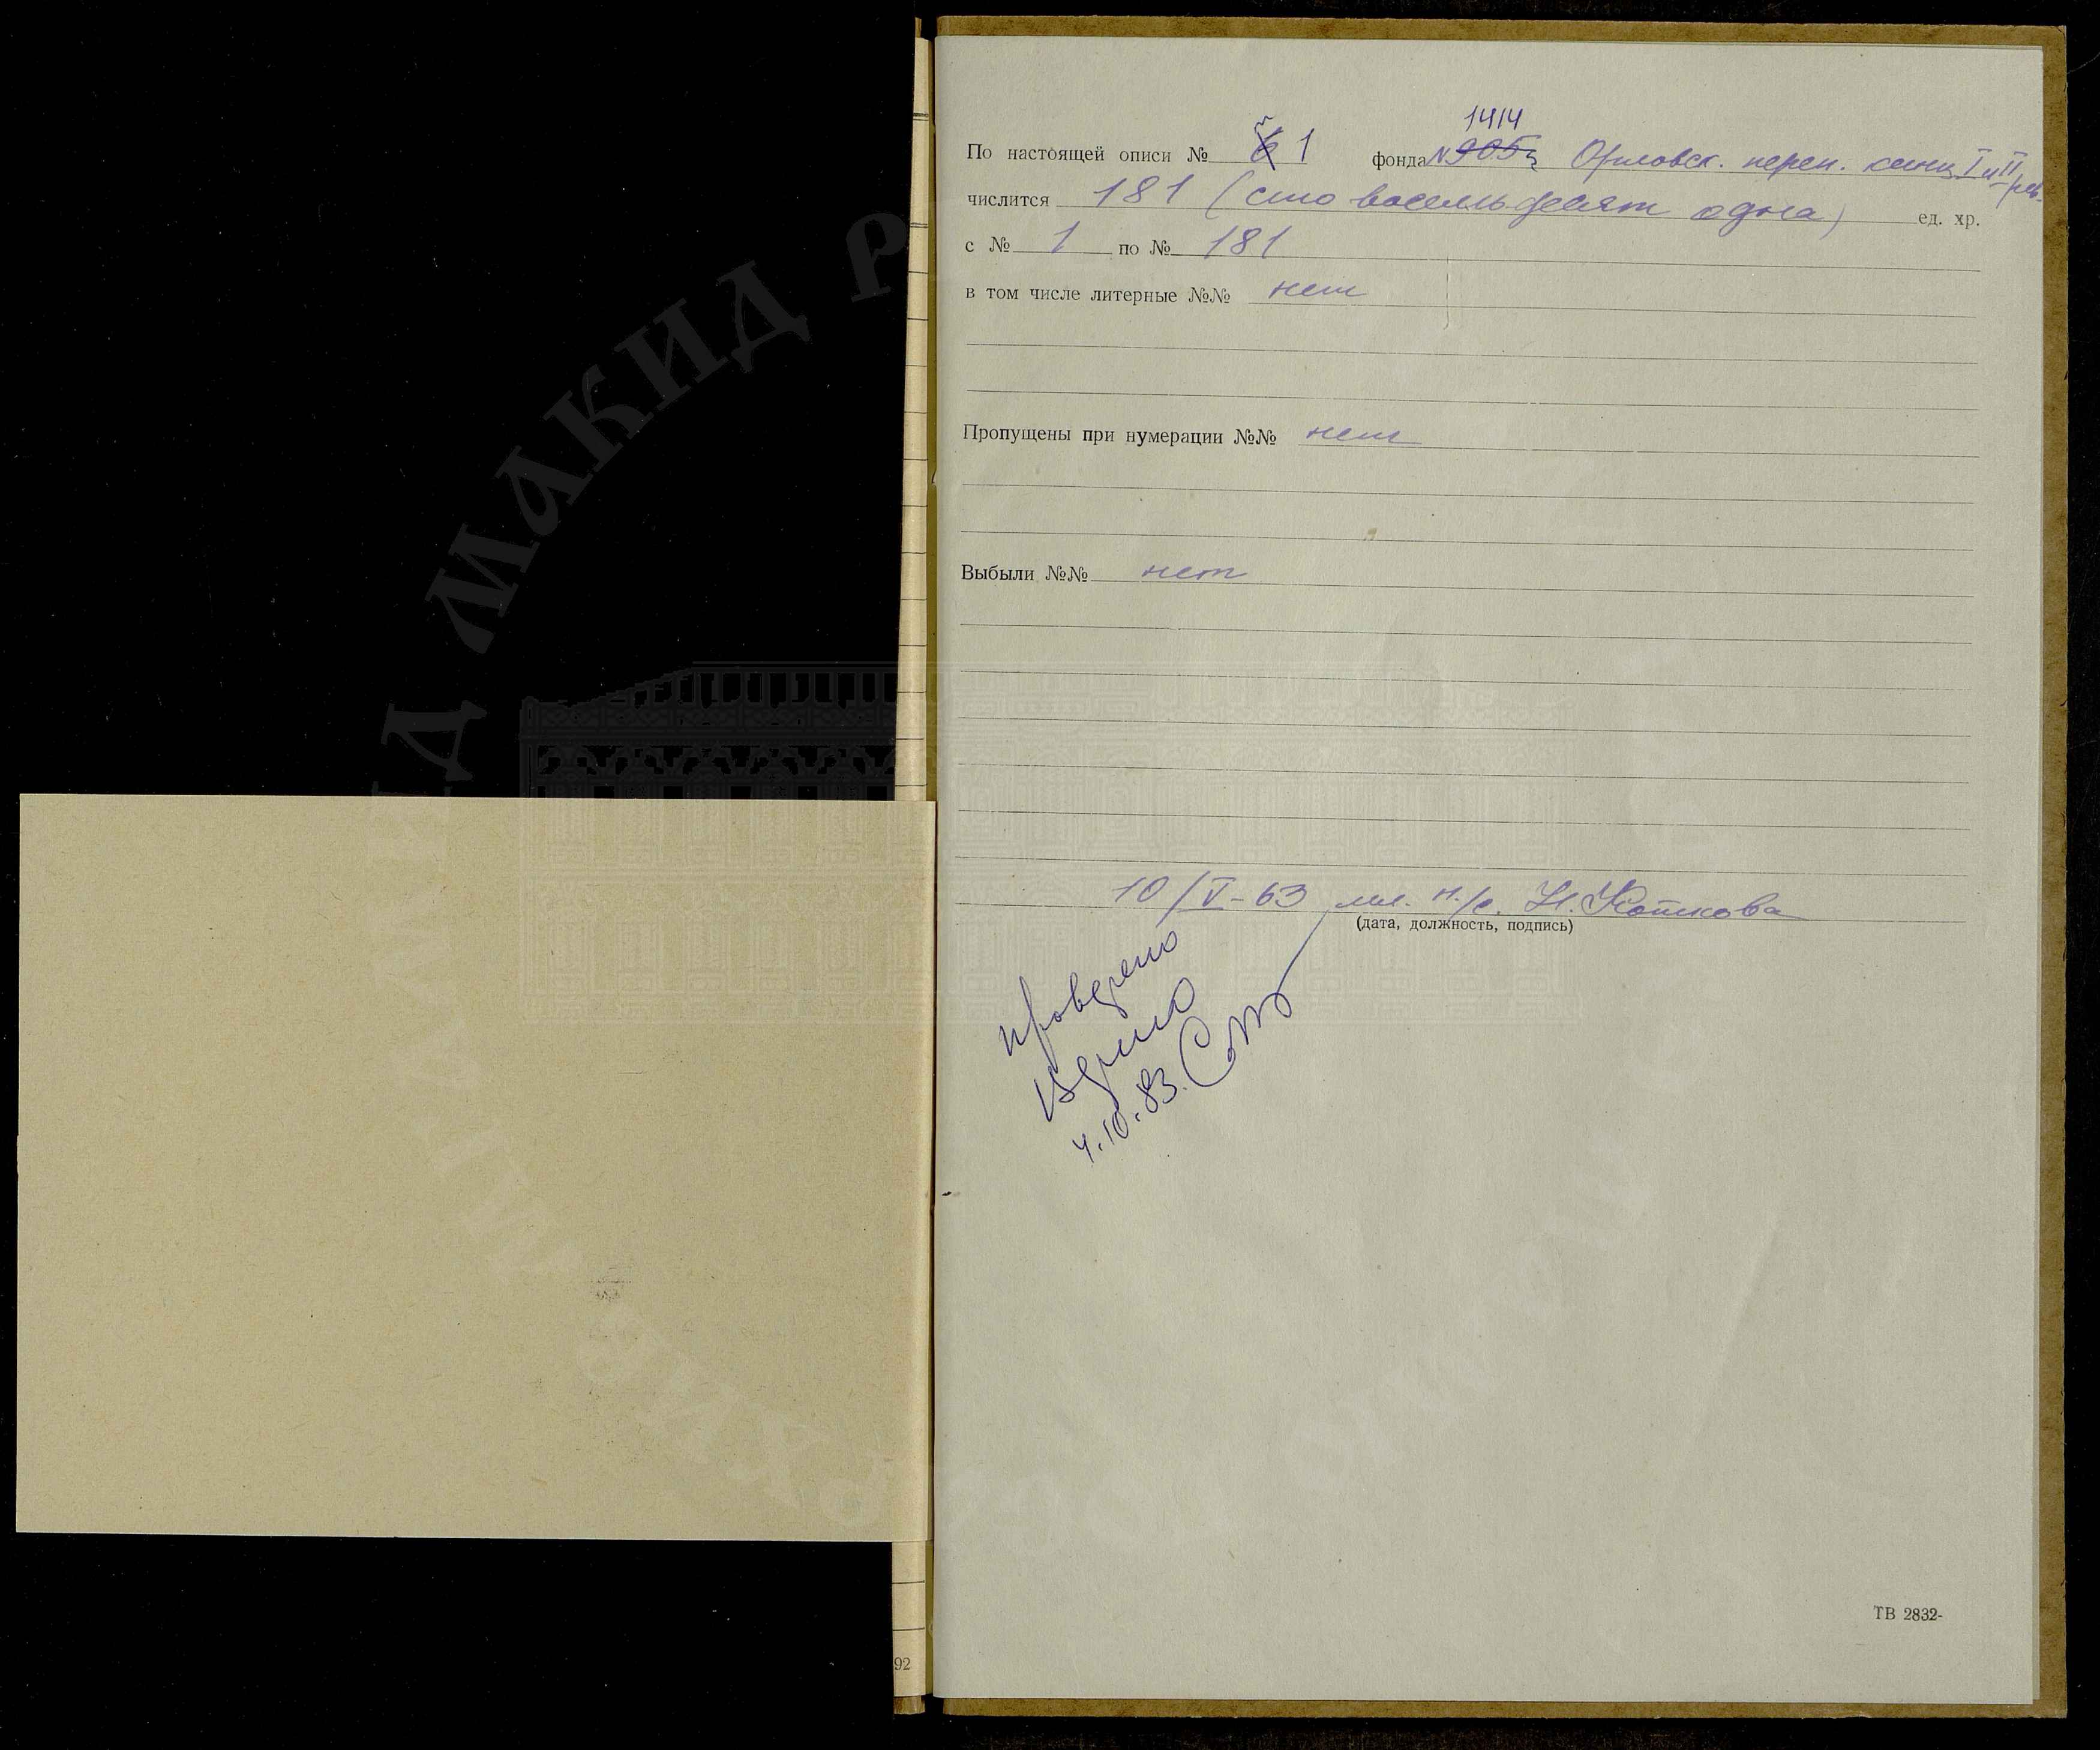 1414
По настоящей описи № 1 фонда № 905 Орловск. переп. канц. I и II рев.
числится 181 (сто восемьдесят одна) ед. хр.
с № 1 по № 181
в том числе литерные №№ нет
Пропущены при нумерации №№ нет
Выбыли №№ нет
10/V-63 мл. н./с. Н. Коткова
(дата, должность, подпись)
Проверено
4.10.83.
ТВ 2832-
92